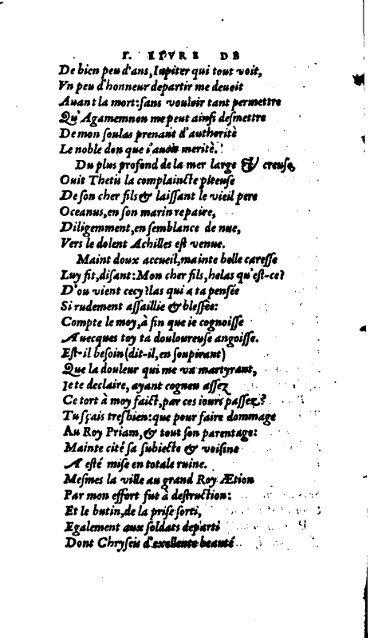 I. LIVRE DE
De bien peu d'ans, Iupiter qui tout voit,
Vn peu d'honneur departir me deuoit
Auant la mort: sans vouloir tant permettre
Qu'Agamemnon me peut ainsi desmettre
De mon soulas prenant d'authorité
Le noble don que i'auois merité.
Du plus profond de la mer large & creuse,
Ouit Thetis la complaincte piteuse
De son cher fils & laissant le vieil pere
Oceanus, en son marin repaire,
Diligemment, en semblance de nue,
Vers le dolent Achilles est venue.
Maint doux accueil, mainte belle caresse
Luy fit, disant: Mon cher fils, helas qu'est-ce?
D'ou vient cecy? las qui a ta pensée
Si rudement assaillie & blessée:
Compte le moy, à fin que ie cognoisse
Auecques toy ta douloureuse angoisse.
Est-il besoin (dit-il, en soupirant)
Que la douleur qui me va martyrant,
Ie te declaire, ayant cogneu assez
Ce tort à moy faict, par ces iours passez?
Tu sçais tresbien: que pour faire dommage
Au Roy Priam, & tout son parentage:
Mainte cité sa subiecte & voisine
A esté mise en totale ruine.
Mesmes la ville au grand Roy Ætion
Par mon effort fut à destruction:
Et le butin, de la prise sorti,
Egalement aux soldats departi
Dont Chryseis d'excellente beauté